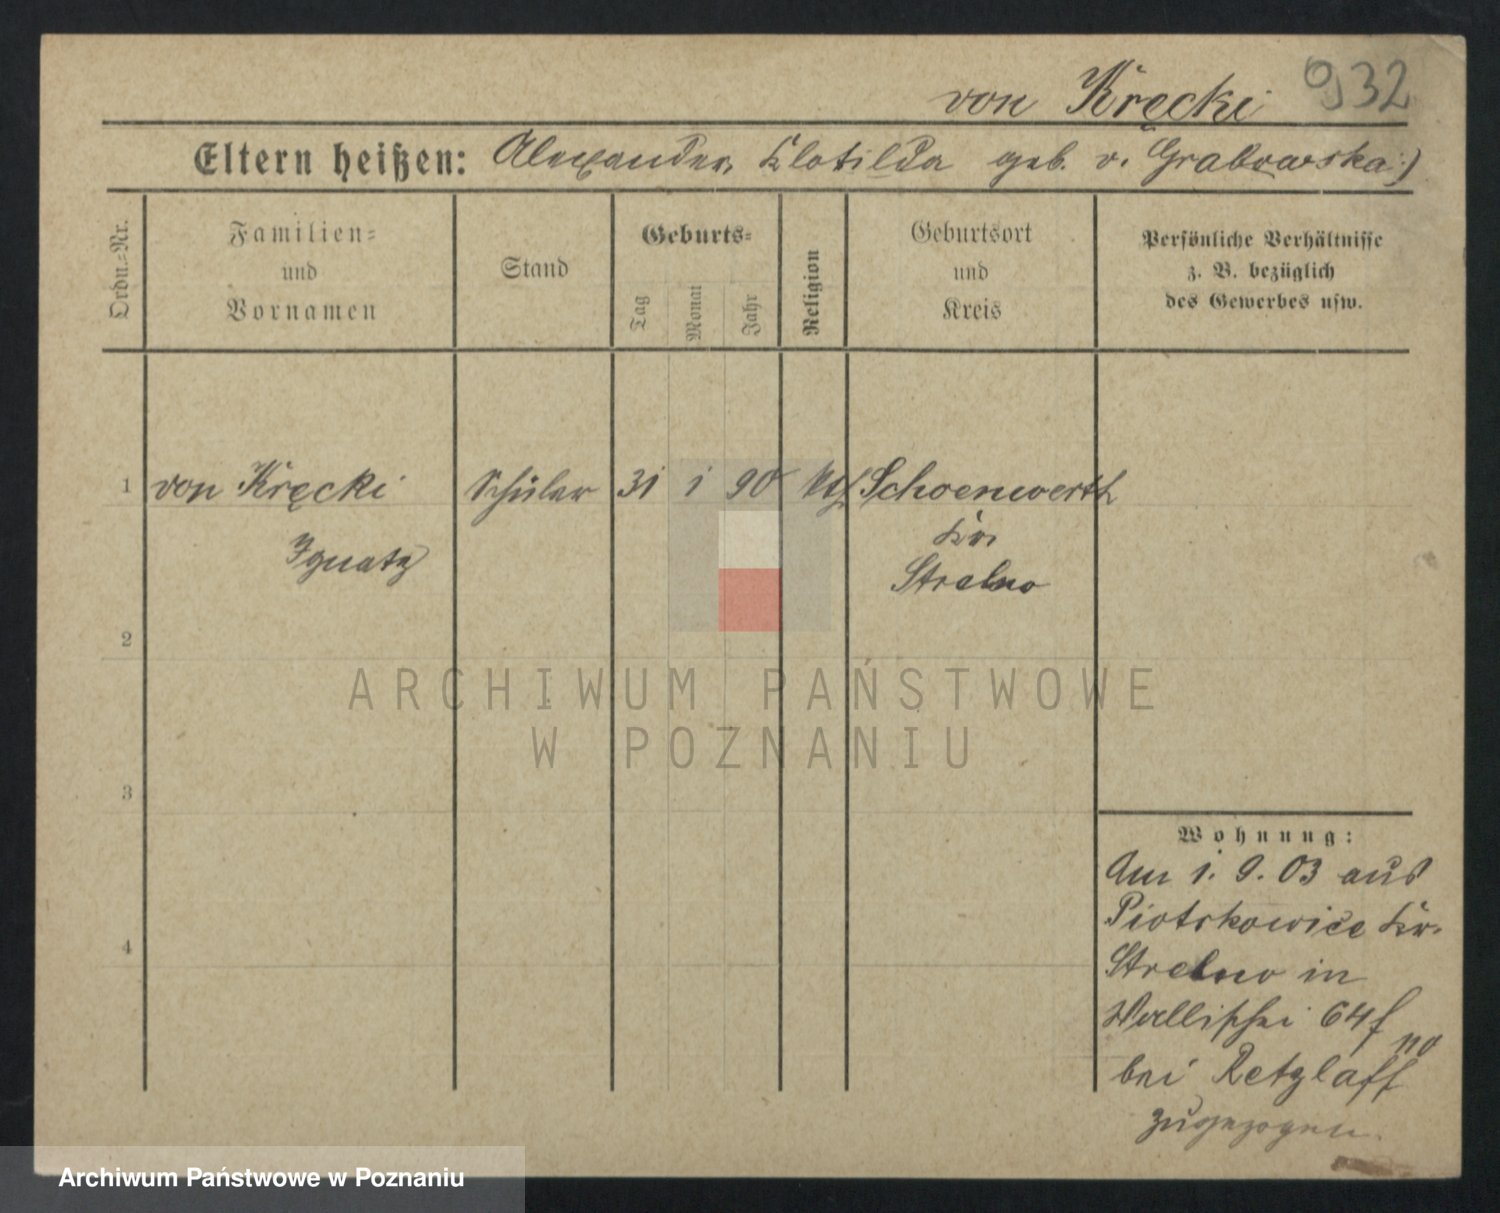 von Kręcki 932
Eltern heißen: Alexander, Klotilda geb. v. Grabowska)
Ordn.-Nr.
Familien-
und
Vornamen
Stand
Geburts-
Tag
Monat
Jahr
Religion
Geburtsort
und
Kreis
Persönliche Verhältnisse
z. B. bezüglich
des Gewerbes usw.
1 von Kręcki Schüler 31 1 90 ktf Schoenwerth
Ignatz
Kr.
Strelno
2
3
4
Wohnung:
Am 1. 9. 03 aus
Piotrkowice Kr.
Strelno in
Wallischei 64f
bei Retzlaff
zugezogen.
ARCHIWUM PAŃSTWOWE
W POZNANIU
Archiwum Państwowe w Poznaniu